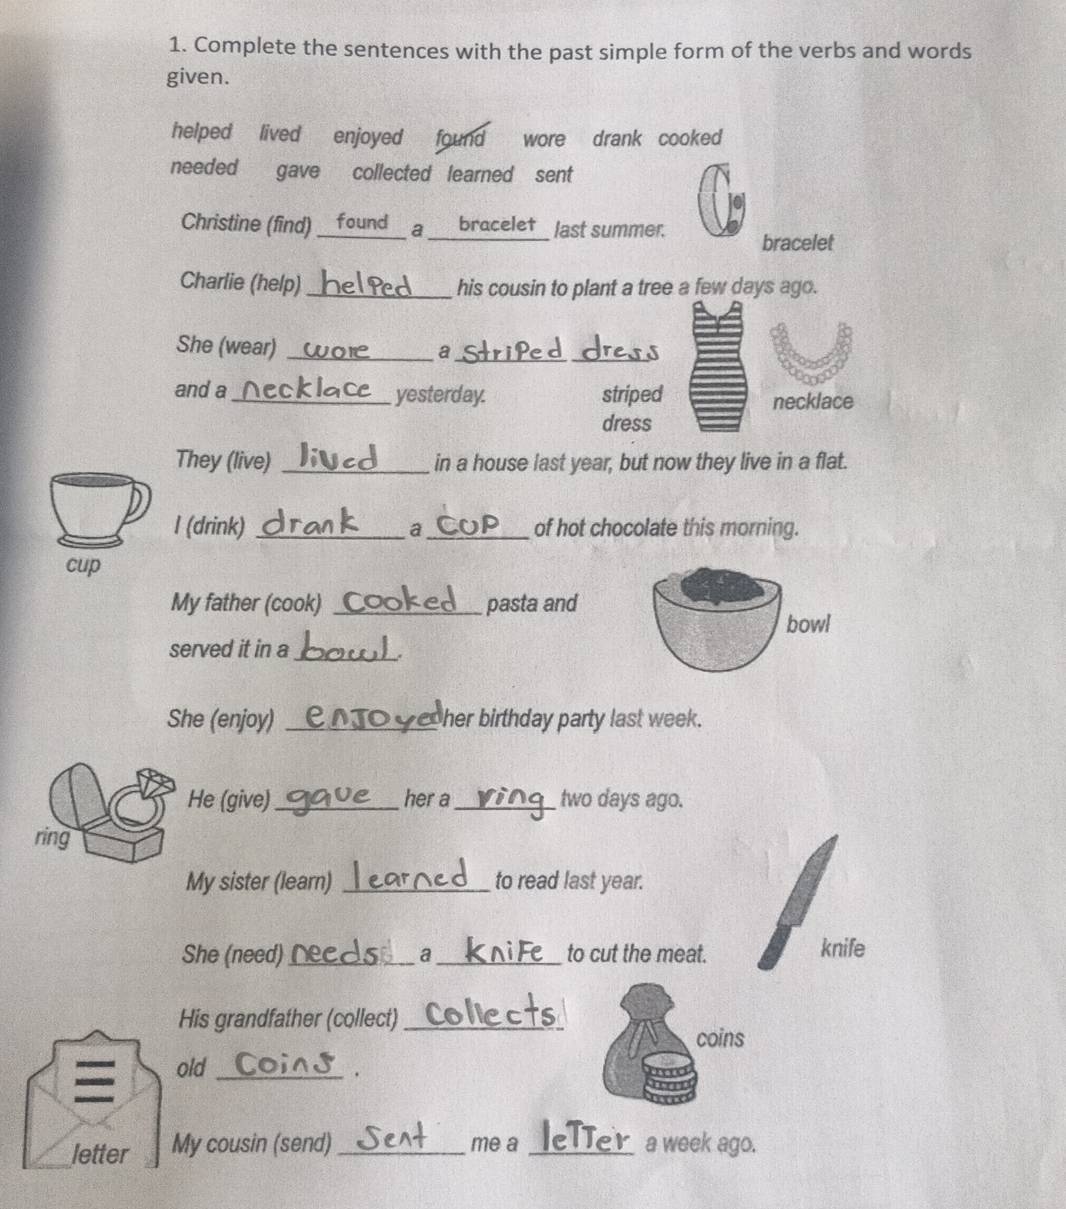 1. Complete the sentences with the past simple form of the verbs and words
given.
helped lived enjoyed found wore drank cooked
needed gave collected learned sent
Christine (find) found a bracelet last summer.
bracelet
Charlie (help) helped his cousin to plant a tree a few days ago.
She (wear) wore a striped dress
and a necklace yesterday.
striped
dress
necklace
They (live) lived in a house last year, but now they live in a flat.
I (drink) drank a cup of hot chocolate this morning.
cup
My father (cook) cooked pasta and
bowl
served it in a bowl.
She (enjoy) enjoyed her birthday party last week.
He (give) gave her a ring two days ago.
ring
My sister (learn) learned to read last year.
She (need) needs a knife to cut the meat.
knife
His grandfather (collect) collects
coins
old coins.
letter
My cousin (send) sent me a letter a week ago.